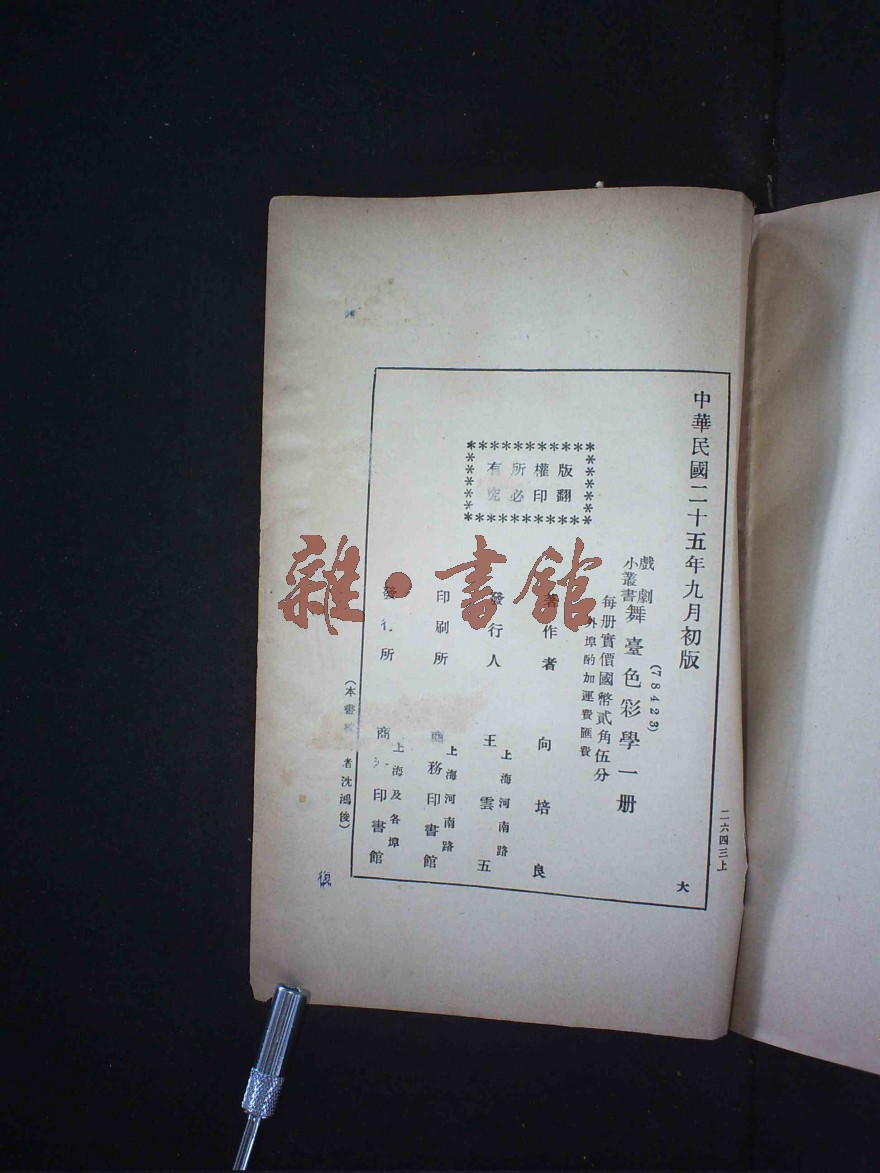 中華民國二十五年九月初版
二六四三上
大
(78423)
戲劇
小叢書
舞臺色彩學一册
每册實價國幣貳角伍分
外埠酌加運費匯費
版權所有
翻印必究
著作者 向培良
發行人 王雲五
上海河南路
印刷所 商務印書館
上海河南路
發行所 商務印書館
上海及各埠
(本書 者沈鴻俊)
雜·書館